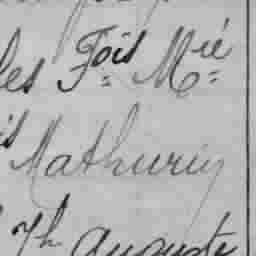 les F.ois M.ie
is Mathurin
Th Auguste